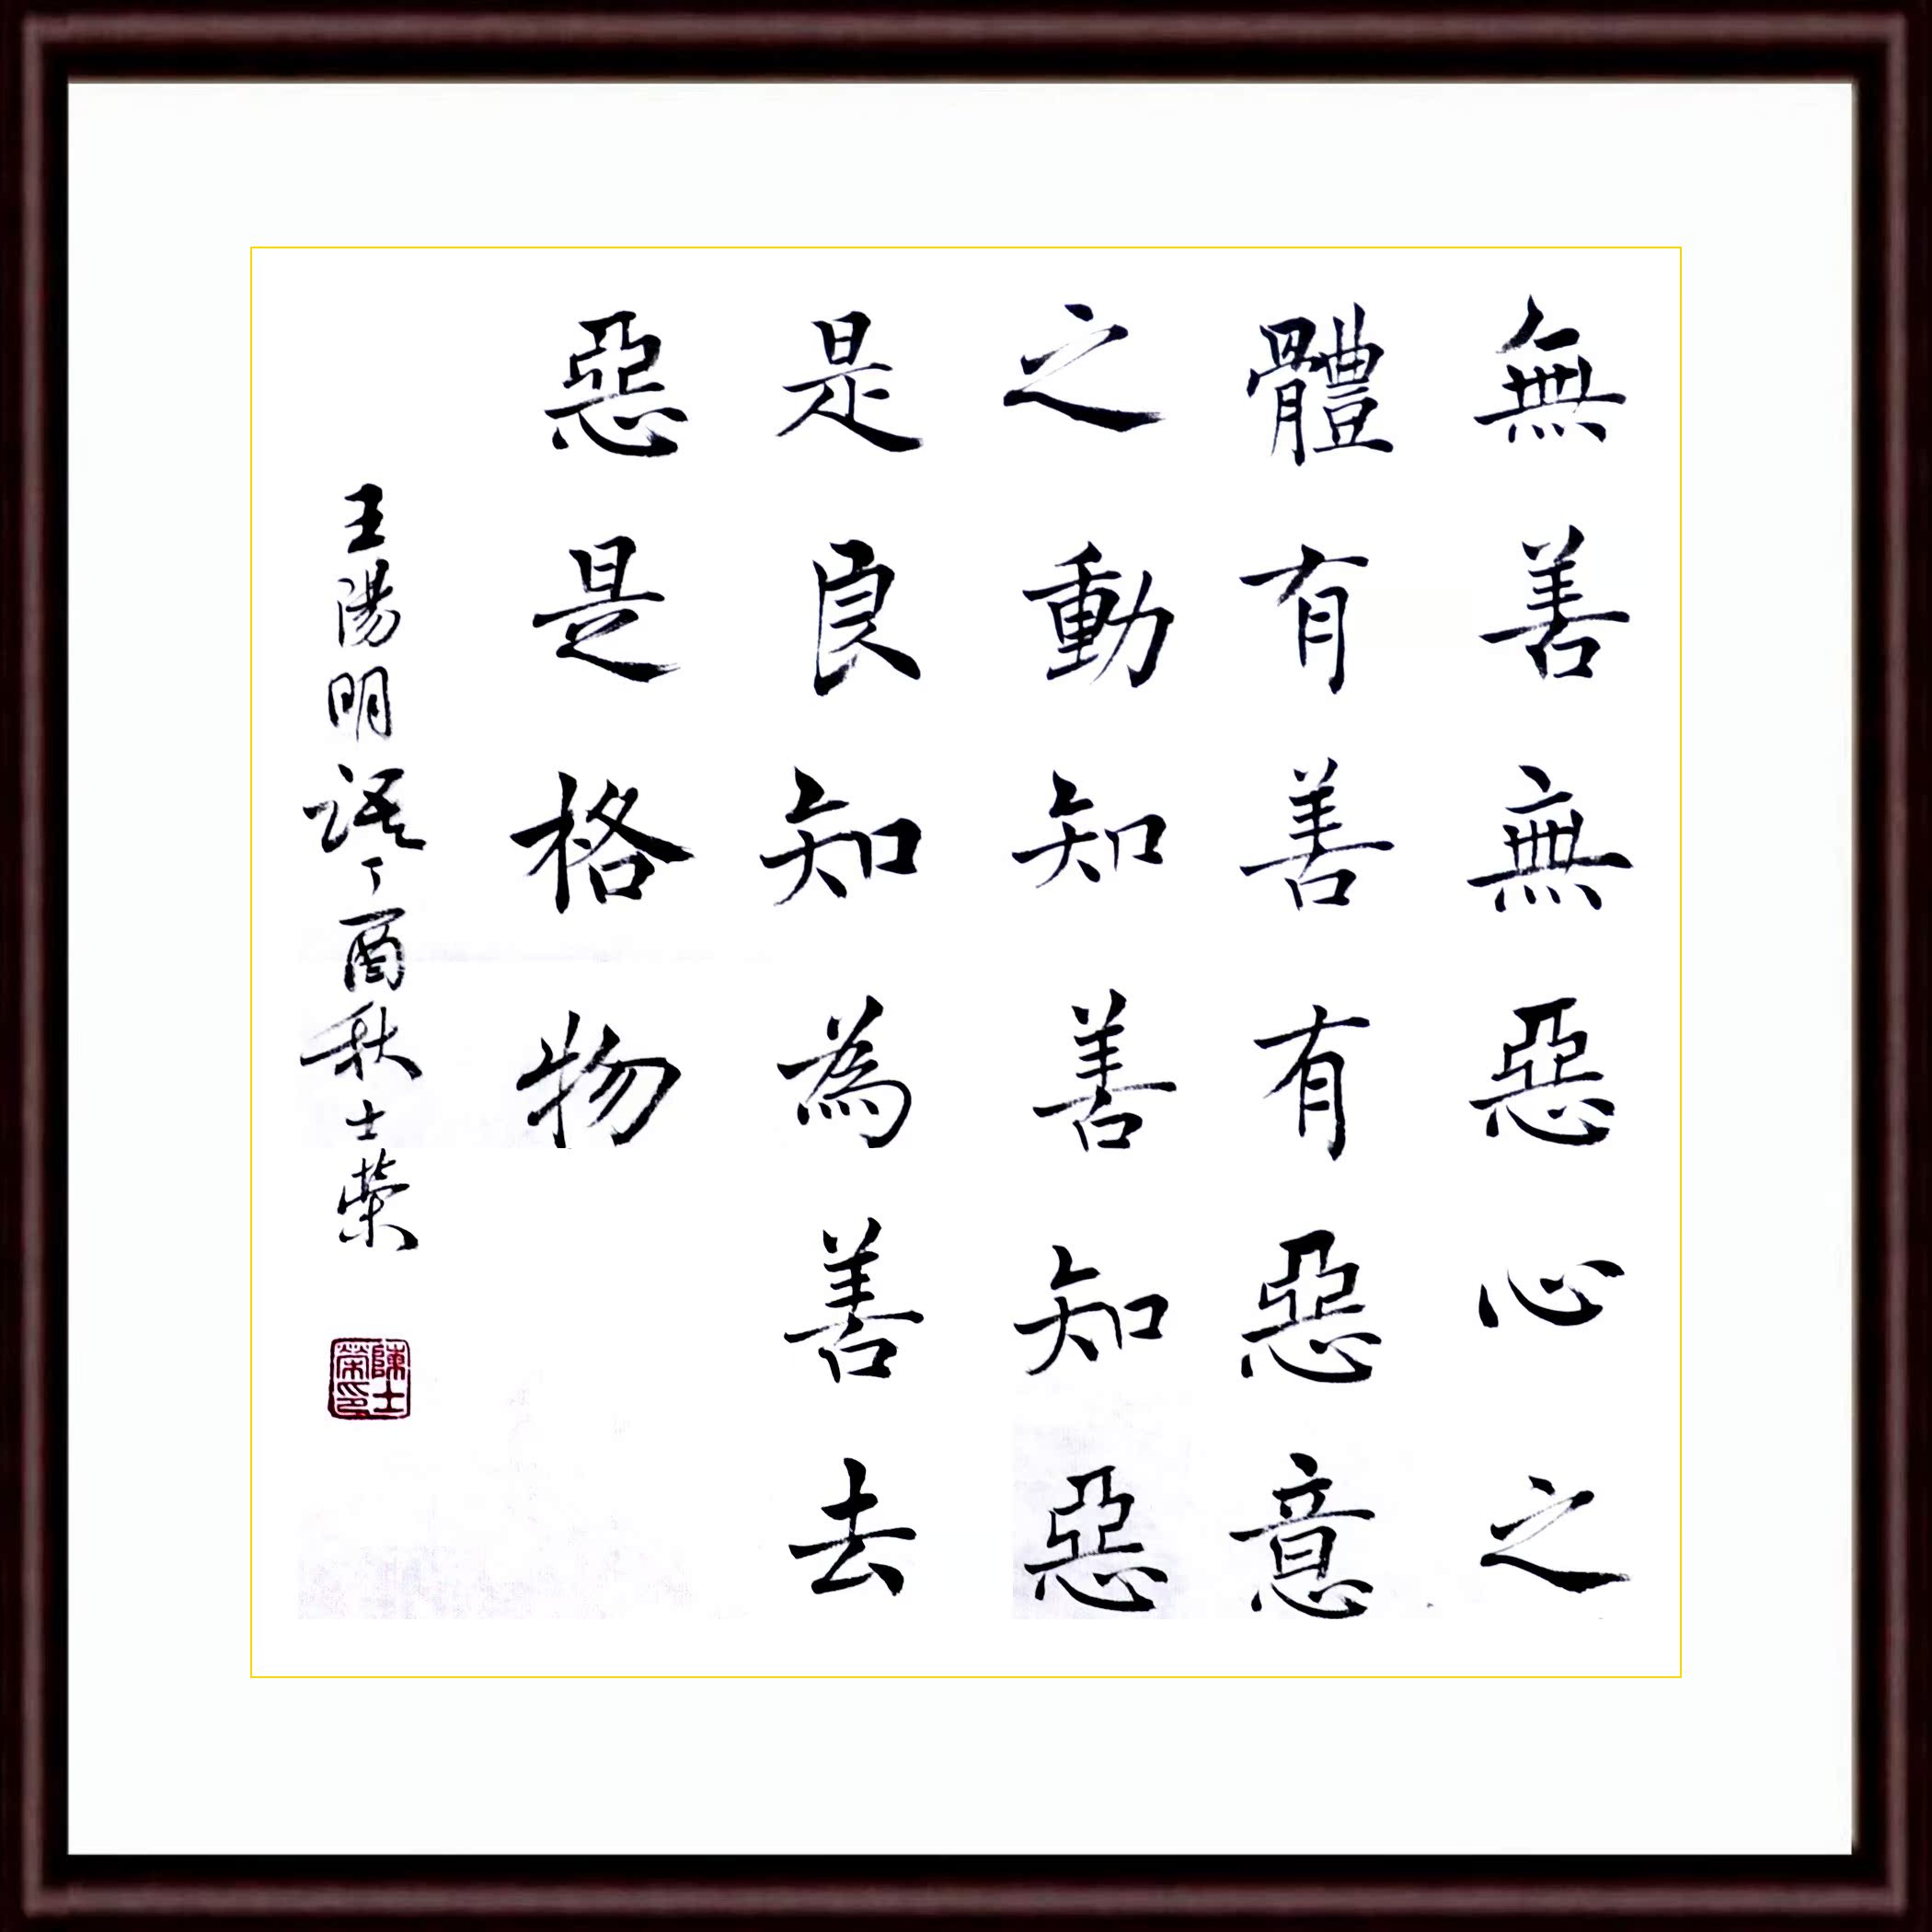 無善無惡心之
體有善有惡意
之動知善知惡
是良知為善去
惡是格物
王陽明語丁酉秋士荣
陳士榮印